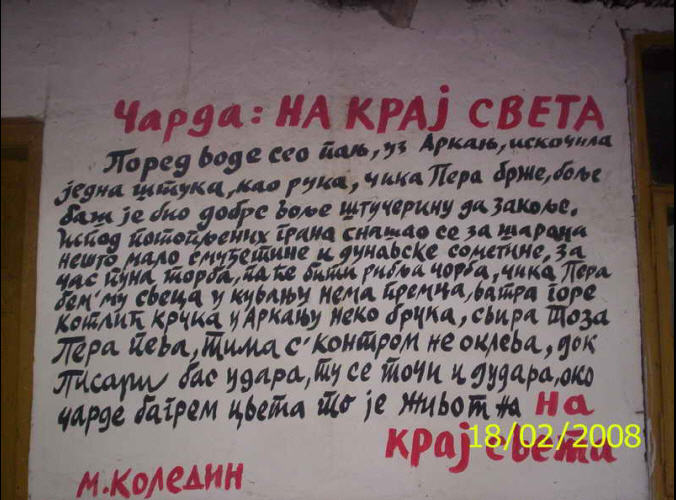 Чарда: НА КРАЈ СВЕТА
Поред воде сео пањ, уз Аркањ, искочила
једна штука, као рука, чика Пера брже, боље
баш је био добре воље штучерину да закоље.
Испод потопљених грана снашао се за шарана
нешто мало смуђетине и дунавске сометине, за
час пуна торба, па ће бити рибља чорба, чика Пера
бем'му свеца у кувању нема премца, ватра горе
котлић крчка у Аркању неко брчка, свира Тоза
Пера пева, Тима с' контром не оклева, док
Писари бас удара, ту се точи и дудара, око
чарде багрем цвета то је живот на НА
КРАЈ СВЕТА
18/02/2008
М. КОЛЕДИН